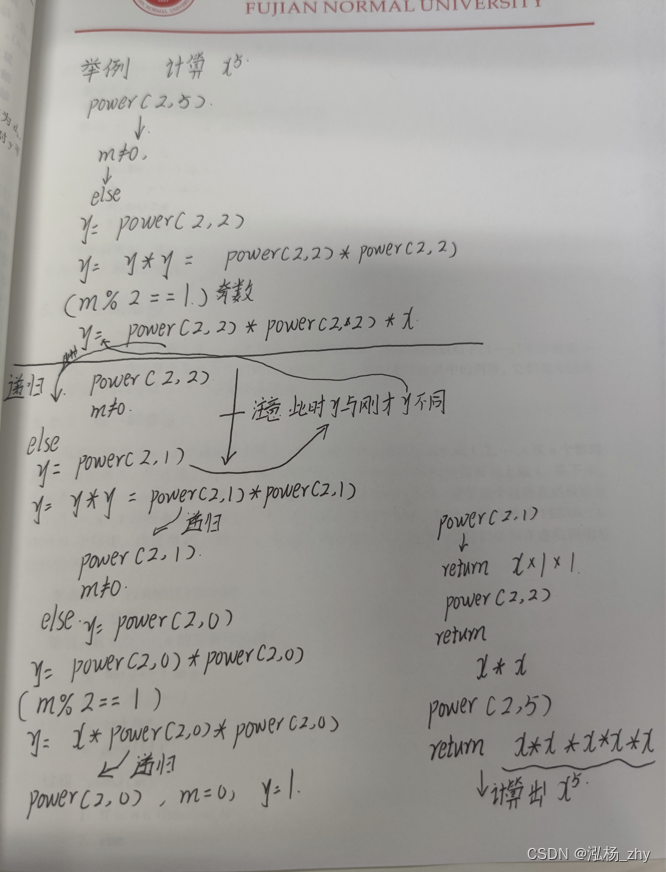 FUJIAN NORMAL UNIVERSITY
举例 计算 x⁵.
power(2,5).
↓
m≠0,
↓
else
y= power(2,2)
y= y*y = power(2,2)*power(2,2)
(m%2==1.)奇数
y= power(2,2)*power(2,2)*x.
递归
power(2,2)
m≠0.
注意 此时y与刚才y不同
else
y= power(2,1)
y= y*y = power(2,1)*power(2,1)
递归
power(2,1).
m≠0.
else. y= power(2,0)
y= power(2,0)*power(2,0)
(m%2==1)
y= x*power(2,0)*power(2,0)
递归
power(2,0), m=0, y=1.
power(2,1)
↓
return x×1×1.
power(2,2)
return
x*x
power(2,5)
return x*x*x*x*x
↓计算出 x⁵.
CSDN @泓杨_zhy